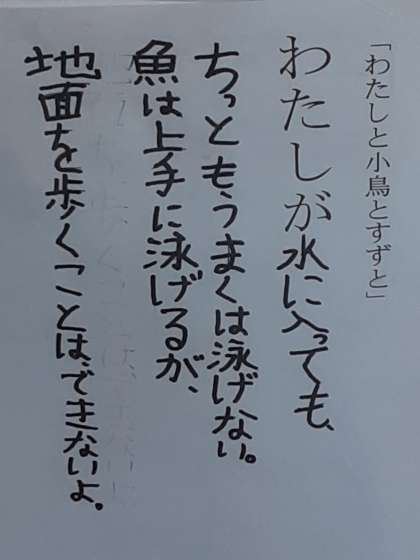 「わたしと小鳥とすずと」
わたしが水に入っても、
ちっともうまくは泳げない。
魚は上手に泳げるが、
地面を歩くことは、できないよ。